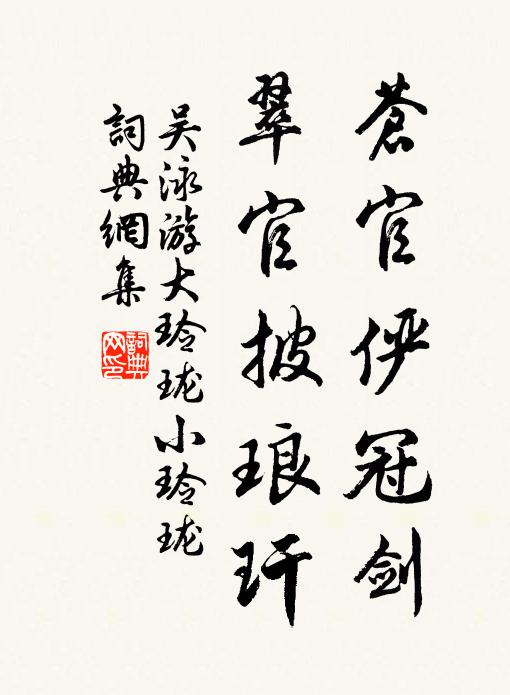 蒼官俨冠剑
翠官披琅玕
吴泳游大玲珑小玲珑
詞典網集
詞典网印